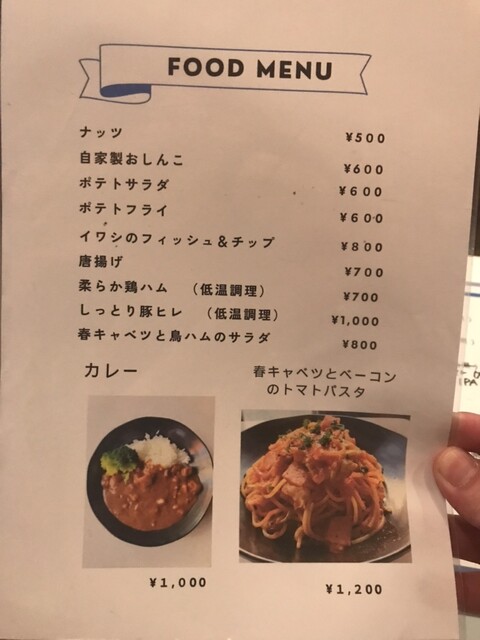 FOOD MENU
ナッツ ¥500
自家製おしんこ ¥600
ポテトサラダ ¥600
ポテトフライ ¥600
イワシのフィッシュ&チップ ¥800
唐揚げ ¥700
柔らか鶏ハム (低温調理) ¥700
しっとり豚ヒレ (低温調理) ¥1,000
春キャベツと鳥ハムのサラダ ¥800
カレー
春キャベツとベーコン
のトマトパスタ
¥1,000
¥1,200